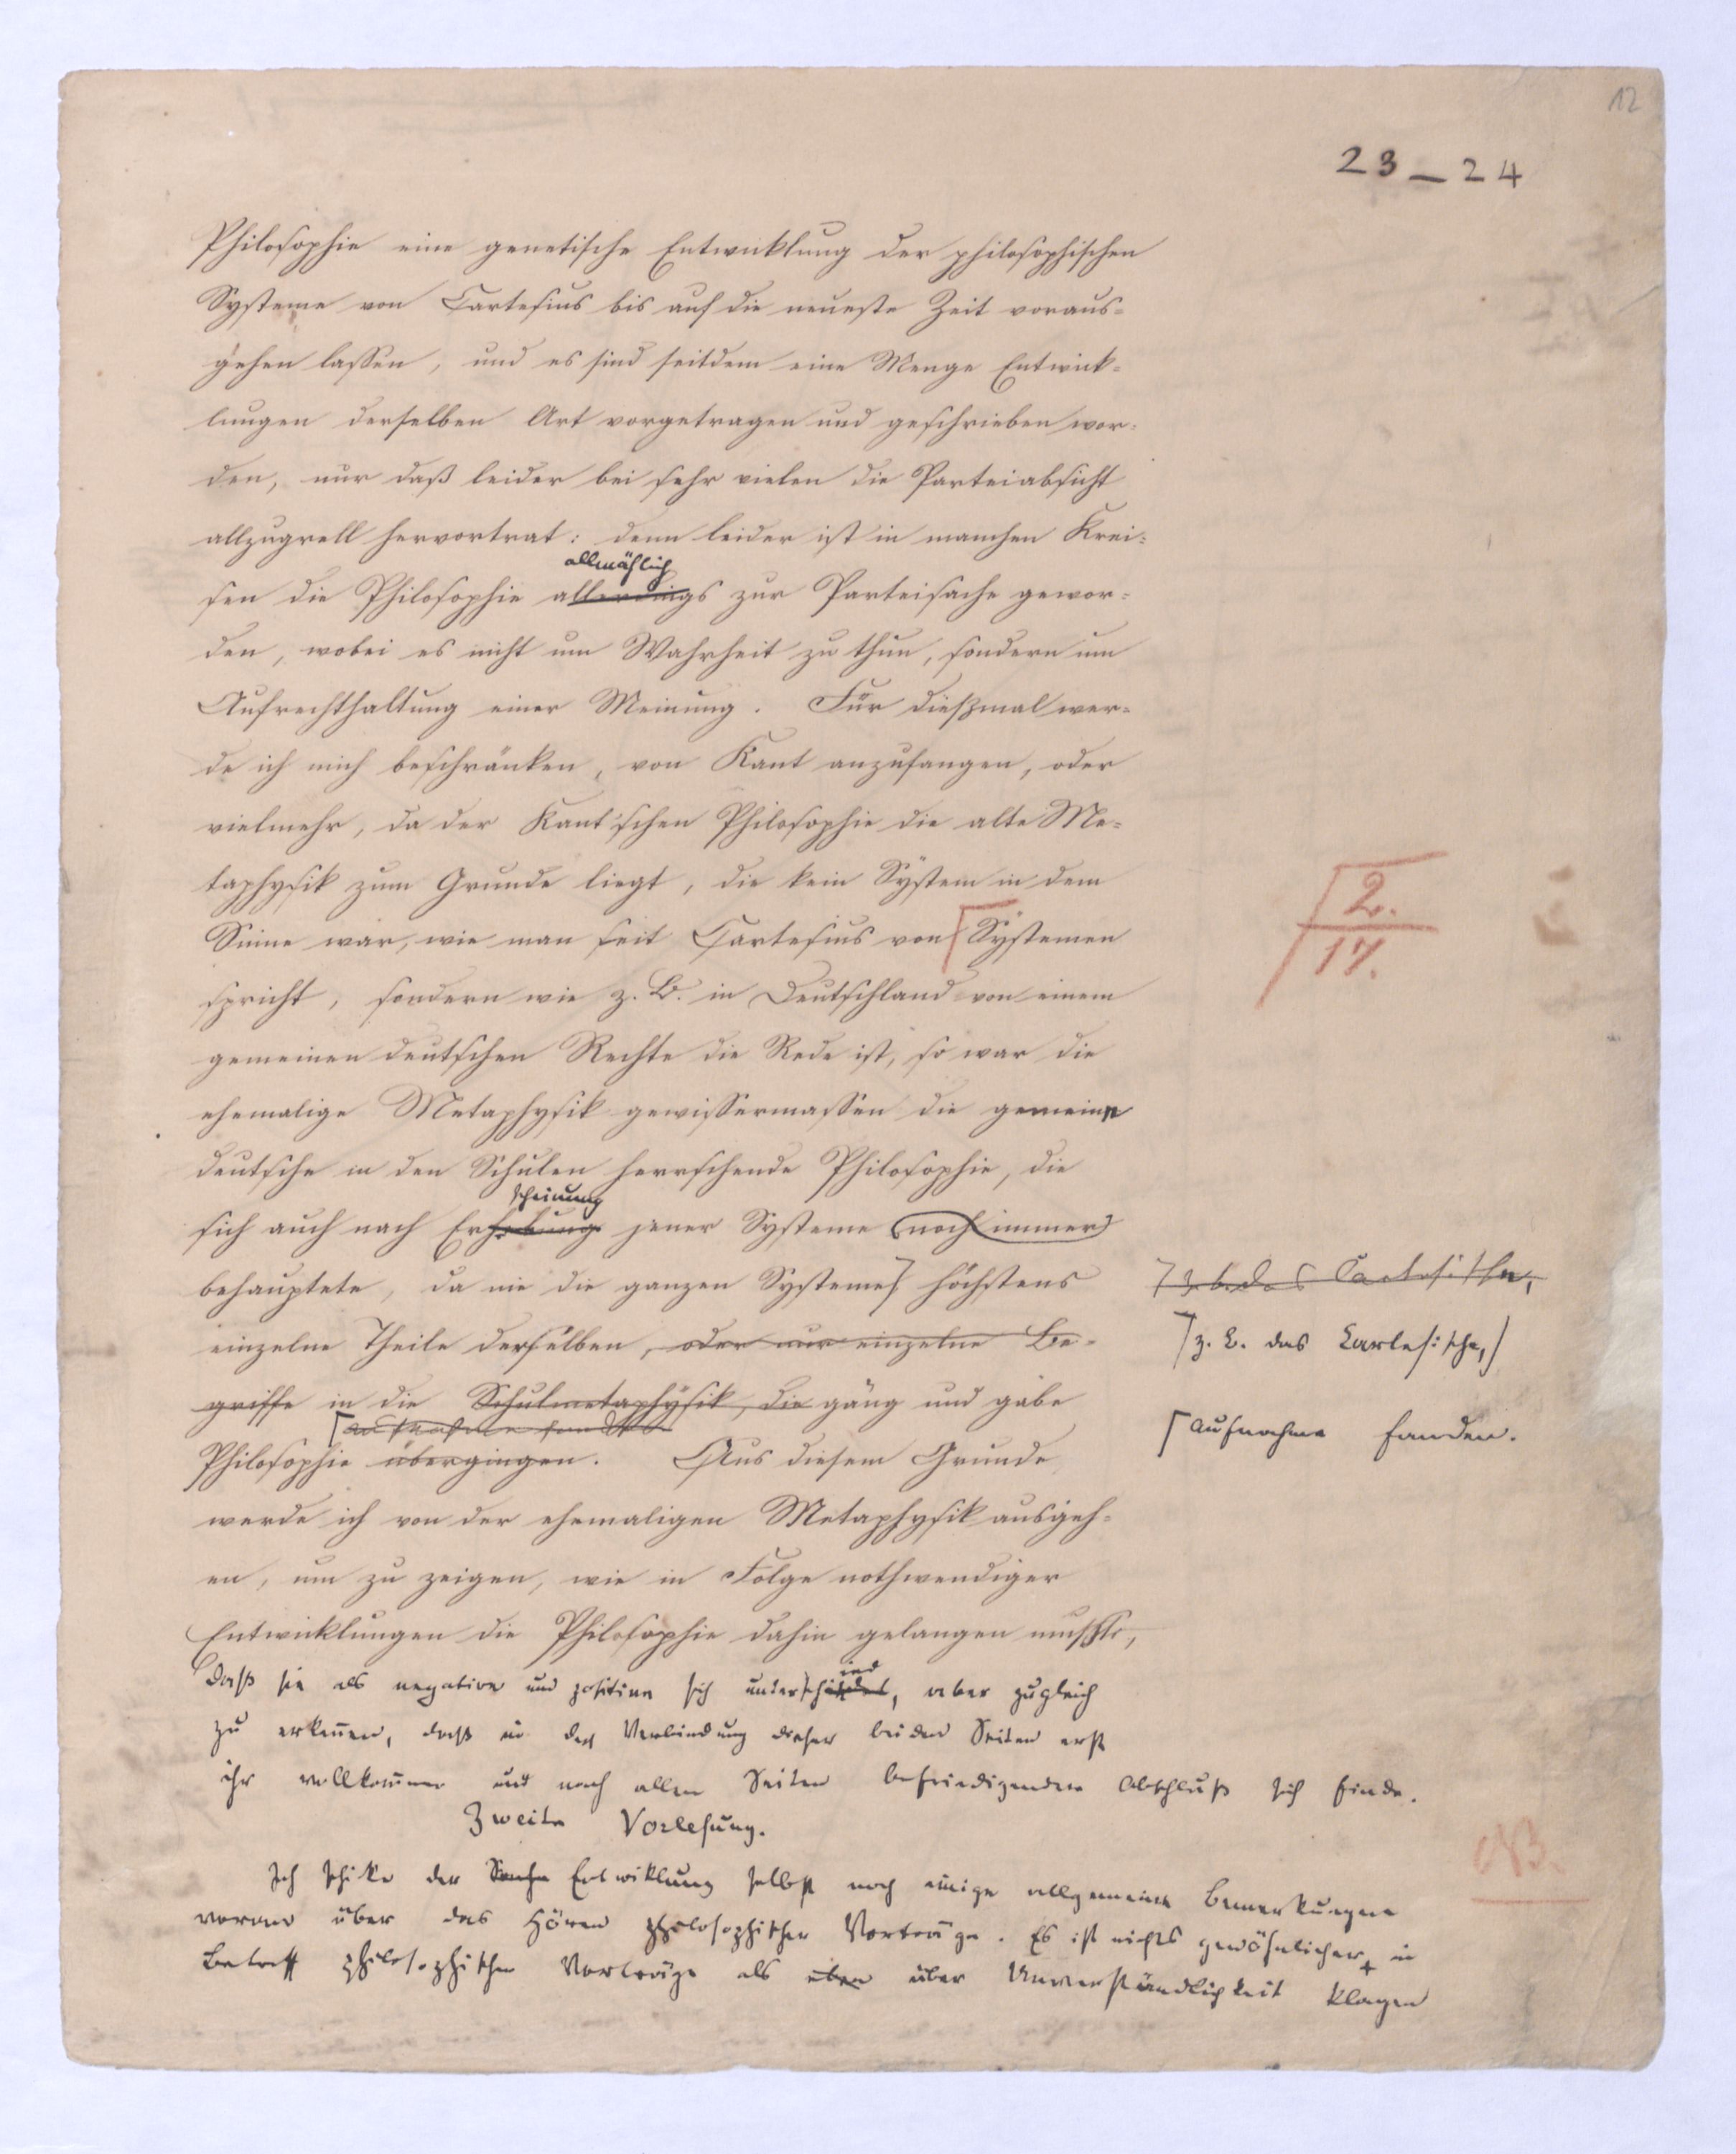 12
23 _ 24
Philosophie eine genetische Entwicklung der philosophischen
Systeme von Cartesius bis auf die neueste Zeit voraus-
gehen lassen, und es sind seitdem eine Menge Entwick-
lungen derselben Art vorgetragen und geschrieben wor-
den, nur daß leider bei sehr vielen die Parteiabsicht
allzugrell hervortrat: denn leider ist in manchen Krei-
allmählich
sen die Philosophie allerdings zur Parteisache gewor-
den, wobei es nicht um Wahrheit zu thun, sondern um
Aufrechthaltung einer Meinung. Für dießmal wer-
de ich mich beschränken, von Kant anzufangen, oder
vielmehr, da der Kant'schen Philosophie die alte Me-
taphysik zum Grunde liegt, die kein System in dem
Sinne war, wie man seit Cartesius von Systemen
2.
17.
spricht, sondern wie z. B. in Deutschland von einem
gemeinen deutschen Rechte die Rede ist, so war die
ehemalige Metaphysik gewissermassen die gemeine
deutsche in den Schulen herrschende Philosophie, die
scheinung
sich auch nach Erhebung jener Systeme (noch immer)
behauptete, da nie die ganzen Systeme, höchstens
z. b. das Cartesische,
einzelne Theile derselben, oder nur einzelne Be-
z. B. das Cartesische,
griffe in die Schulmetaphysik, die gäng und gäbe
aufnahme fanden
Philosophie übergingen. Aus diesem Grunde
Aufnahme fanden.
werde ich von der ehemaligen Metaphysik ausgeh-
en, um zu zeigen, wie in Folge nothwendiger
Entwicklungen die Philosophie dahin gelangen mußte,
ied
daß sie als negative und positive sich unterscheidet, aber zugleich
zu erkennen, daß in der Verbindung dieser beiden Seiten erst
ihr vollkommen und nach allen Seiten befriedigender Abschluß sich finde.
Zweite Vorlesung.
NB.
Ich schike der Sache Entwiklung selbst noch einige allgemeine Bemerkungen
voran über das Hören philosophischer Vorträge. Es ist nichts gewöhnlicher + in
Betreff philosophischer Vorträge als eben über Unverständlichkeit klagen